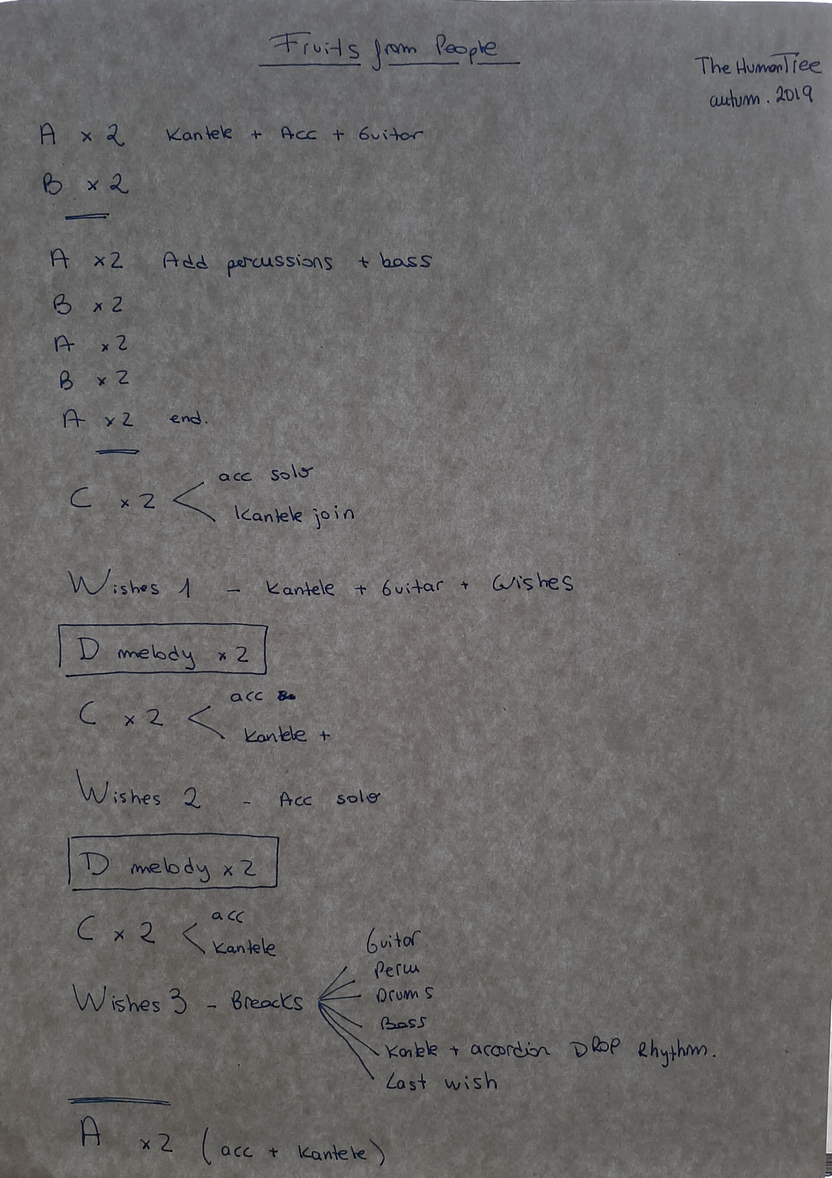 Fruits from People
The HumanTree
autum. 2019
A x 2 Kantele + Acc + Guitar
B x 2
A x2 Add percussions + bass
B x2
A x2
B x2
A x2 end.
C x 2 < acc solo
Kantele join
Wishes 1 - Kantele + Guitar + Wishes
D melody x 2
C x 2 < acc
Kantele +
Wishes 2 - Acc solo
D melody x 2
C x 2 < acc
Kantele
Guitar
Percu
Wishes 3 - Breacks
Drums
Bass
Kantele + accordin DROP Rhythm.
Last wish
A x2 (acc + Kantele)